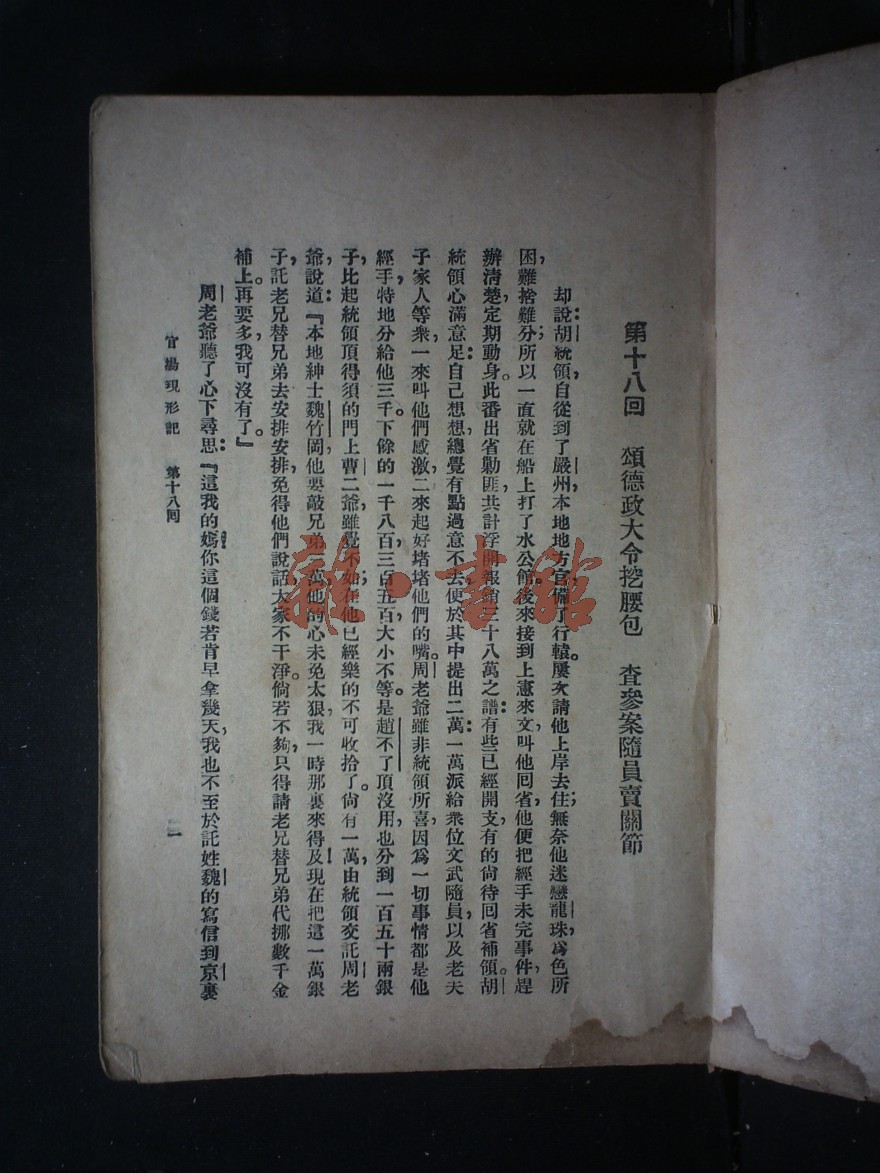 第十八回　頌德政大令挖腰包　查參案隨員賣關節
却說胡統領自從到了嚴州，本地地方官備了行轅，屢次請他上岸去住；無奈他迷戀龍珠，爲色所
困，難捨難分，所以一直就在船上打了水公館。後來接到上憲來文，叫他回省，他便把經手未完事件，趕
辦淸楚，定期動身。此番出省勦匪，共計浮開報銷三十八萬之譜：有些已經開支，有的尙待回省補領。胡
統領心滿意足；自己想想，總覺有點過意不去，便於其中提出二萬：一萬派給衆位文武隨員，以及老夫
子家人等衆，一來叫他們感激，二來起好堵堵他們的嘴。周老爺雖非統領所喜，因爲一切事情都是他
經手，特地分給他三千。下餘的一千八百三百五百大小不等。是趙不了頂沒用，也分到一百五十兩銀
子，比起統領頂得須的門上曹二爺，雖覺不如；在他已經樂的不可收拾了。尙有一萬，由統領交託周老
爺，說道：『本地紳士魏竹岡，他要敲兄弟二萬，他的心未免太狠，我一時那裏來得及！現在把這一萬銀
子，託老兄替兄弟去安排安排，免得他們說話，大家不干淨。倘若不夠，只得請老兄替兄弟代挪數千金
補上。再要多，我可沒有了。』
周老爺聽了，心下尋思：『這我的媽！你這個錢若肯早拿幾天，我也不至於託姓魏的寫信到京裏
官場現形記　第十八回　一
雜·書館